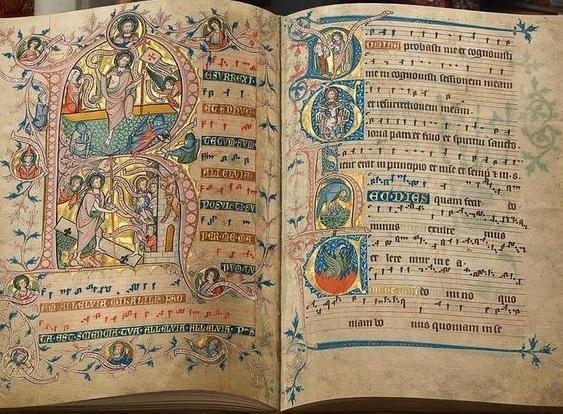 RESURREXI
ET ADHVC
TECVM SVM
ALLELVIA
POSVISTI SV
PER ME MA
NVM TV
AM ALLELVIA MIRABILIS FAC
TA EST SCIENCIA TVA ALLELVIA ALLELVIA P S
DOMINE probasti me et cognouisti
me tu cognouisti sessionem meam
et resurrectionem meam.
Gloria patri et filio et spiritui sancto
Sicut erat in principio et nunc et semper
HEC DIES quam fecit do
minus exulte mus
et lete mur in e a.
CONFITEMINI do mi no quo
niam bo nus quoniam in se